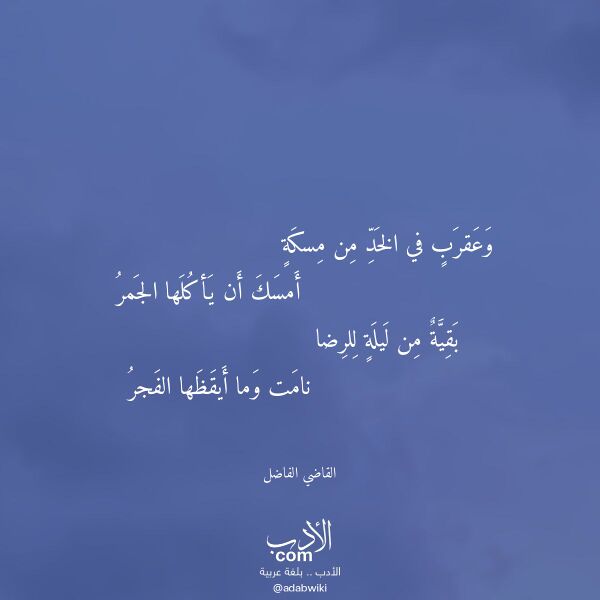 وَعَقرَبٍ في الخَدِّ مِن مِسكَةٍ
أَمسَكَ أَن يَأكُلَها الجَمرُ
بَقِيَّةٌ مِن لَيلَةٍ لِلرِضا
نامَت وَما أَيقَظَها الفَجرُ
القاضي الفاضل
الأدب
com
الأدب .. بلغة عربية
@adabwiki